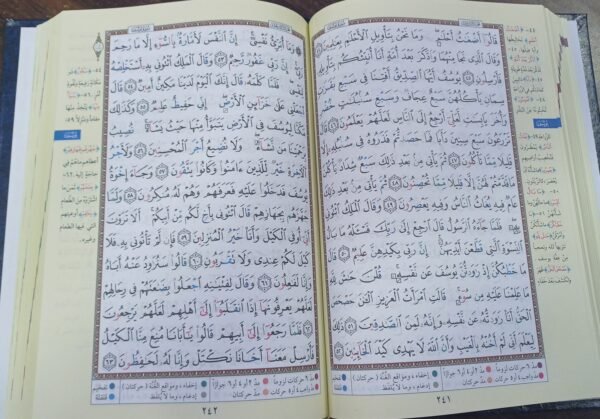 قَالُوٓاْ أَضْغَٰثُ أَحْلَٰمٍۖ وَمَا نَحْنُ بِتَأْوِيلِ ٱلْأَحْلَٰمِ بِعَٰلِمِينَ ٤٤
وَقَالَ ٱلَّذِى نَجَا مِنْهُمَا وَٱدَّكَرَ بَعْدَ أُمَّةٍ أَنَا۠ أُنَبِّئُكُم بِتَأْوِيلِهِۦ
فَأَرْسِلُونِ ٤٥ يُوسُفُ أَيُّهَا ٱلصِّدِّيقُ أَفْتِنَا فِى سَبْعِ بَقَرَٰتٍ
سِمَانٍ يَأْكُلُهُنَّ سَبْعٌ عِجَافٌ وَسَبْعِ سُنۢبُلَٰتٍ خُضْرٍ
وَأُخَرَ يَابِسَٰتٍ لَّعَلِّىٓ أَرْجِعُ إِلَى ٱلنَّاسِ لَعَلَّهُمْ يَعْلَمُونَ ٤٦ قَالَ
تَزْرَعُونَ سَبْعَ سِنِينَ دَأَبًا فَمَا حَصَدتُّمْ فَذَرُوهُ فِى سُنۢبُلِهِۦٓ إِلَّا
قَلِيلًا مِّمَّا تَأْكُلُونَ ٤٧ ثُمَّ يَأْتِى مِنۢ بَعْدِ ذَٰلِكَ سَبْعٌ شِدَادٌ يَأْكُلْنَ
مَا قَدَّمْتُمْ لَهُنَّ إِلَّا قَلِيلًا مِّمَّا تُحْصِنُونَ ٤٨ ثُمَّ يَأْتِى مِنۢ بَعْدِ ذَٰلِكَ
عَامٌ فِيهِ يُغَاثُ ٱلنَّاسُ وَفِيهِ يَعْصِرُونَ ٤٩ وَقَالَ ٱلْمَلِكُ ٱئْتُونِى
بِهِۦۖ فَلَمَّا جَآءَهُ ٱلرَّسُولُ قَالَ ٱرْجِعْ إِلَىٰ رَبِّكَ فَسْـَٔلْهُ مَا بَالُ
ٱلنِّسْوَةِ ٱلَّٰتِى قَطَّعْنَ أَيْدِيَهُنَّۚ إِنَّ رَبِّى بِكَيْدِهِنَّ عَلِيمٌ ٥٠ قَالَ
مَا خَطْبُكُنَّ إِذْ رَٰوَدتُّنَّ يُوسُفَ عَن نَّفْسِهِۦۚ قُلْنَ حَٰشَ لِلَّهِ
مَا عَلِمْنَا عَلَيْهِ مِن سُوٓءٍۚ قَالَتِ ٱمْرَأَتُ ٱلْعَزِيزِ ٱلْـَٰٔنَ حَصْحَصَ
ٱلْحَقُّ أَنَا۠ رَٰوَدتُّهُۥ عَن نَّفْسِهِۦ وَإِنَّهُۥ لَمِنَ ٱلصَّٰدِقِينَ ٥١ ذَٰلِكَ
لِيَعْلَمَ أَنِّى لَمْ أَخُنْهُ بِٱلْغَيْبِ وَأَنَّ ٱللَّهَ لَا يَهْدِى كَيْدَ ٱلْخَآئِنِينَ ٥٢
٢٤١
وَمَآ أُبَرِّئُ نَفْسِىٓۚ إِنَّ ٱلنَّفْسَ لَأَمَّارَةٌۢ بِٱلسُّوٓءِ إِلَّا مَا رَحِمَ
رَبِّىٓۚ إِنَّ رَبِّى غَفُورٌ رَّحِيمٌ ٥٣ وَقَالَ ٱلْمَلِكُ ٱئْتُونِى بِهِۦٓ أَسْتَخْلِصْهُ
لِنَفْسِىۖ فَلَمَّا كَلَّمَهُۥ قَالَ إِنَّكَ ٱلْيَوْمَ لَدَيْنَا مَكِينٌ أَمِينٌ ٥٤ قَالَ
ٱجْعَلْنِى عَلَىٰ خَزَآئِنِ ٱلْأَرْضِۖ إِنِّى حَفِيظٌ عَلِيمٌ ٥٥ وَكَذَٰلِكَ
مَكَّنَّا لِيُوسُفَ فِى ٱلْأَرْضِ يَتَبَوَّأُ مِنْهَا حَيْثُ يَشَآءُۚ نُصِيبُ
بِرَحْمَتِنَا مَن نَّشَآءُۖ وَلَا نُضِيعُ أَجْرَ ٱلْمُحْسِنِينَ ٥٦ وَلَأَجْرُ
ٱلْـَٔاخِرَةِ خَيْرٌ لِّلَّذِينَ ءَامَنُواْ وَكَانُواْ يَتَّقُونَ ٥٧ وَجَآءَ إِخْوَةُ
يُوسُفَ فَدَخَلُواْ عَلَيْهِ فَعَرَفَهُمْ وَهُمْ لَهُۥ مُنكِرُونَ ٥٨ وَلَمَّا
جَهَّزَهُم بِجَهَازِهِمْ قَالَ ٱئْتُونِى بِأَخٍ لَّكُم مِّنْ أَبِيكُمْۚ أَلَا تَرَوْنَ
أَنِّىٓ أُوفِى ٱلْكَيْلَ وَأَنَا۠ خَيْرُ ٱلْمُنزِلِينَ ٥٩ فَإِن لَّمْ تَأْتُونِى بِهِۦ فَلَا
كَيْلَ لَكُمْ عِندِى وَلَا تَقْرَبُونِ ٦٠ قَالُواْ سَنُرَٰوِدُ عَنْهُ أَبَاهُ
وَإِنَّا لَفَٰعِلُونَ ٦١ وَقَالَ لِفِتْيَٰنِهِ ٱجْعَلُواْ بِضَٰعَتَهُمْ فِى رِحَالِهِمْ
لَعَلَّهُمْ يَعْرِفُونَهَآ إِذَا ٱنقَلَبُوٓاْ إِلَىٰٓ أَهْلِهِمْ لَعَلَّهُمْ يَرْجِعُونَ
٦٢ فَلَمَّا رَجَعُوٓاْ إِلَىٰٓ أَبِيهِمْ قَالُواْ يَٰٓأَبَانَا مُنِعَ مِنَّا ٱلْكَيْلُ
فَأَرْسِلْ مَعَنَآ أَخَانَا نَكْتَلْ وَإِنَّا لَهُۥ لَحَٰفِظُونَ ٦٣
٢٤٢